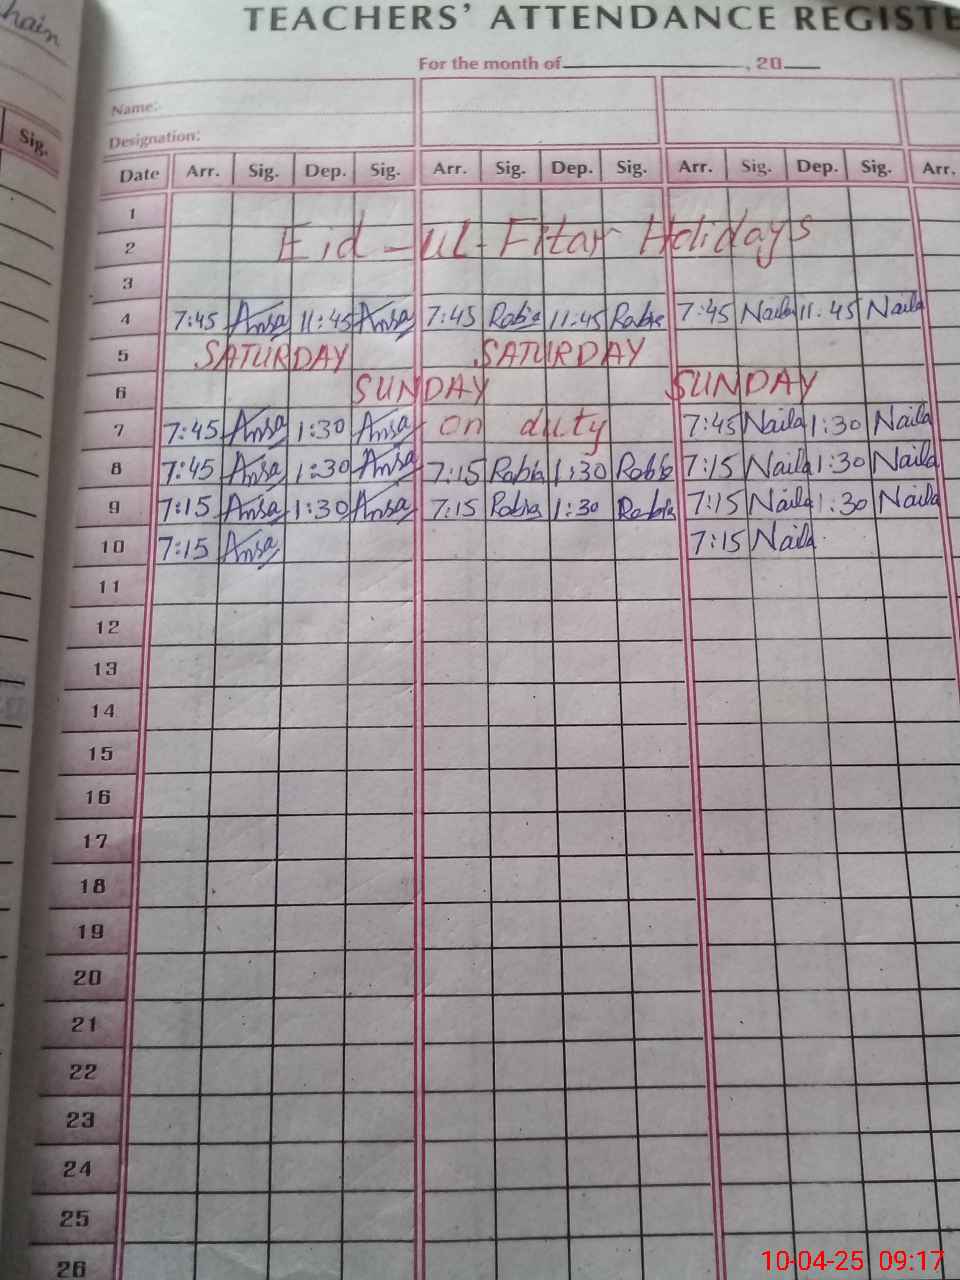 hain
Sig.
TEACHERS' ATTENDANCE REGISTE
For the month of , 20
Name:
Designation:
Date Arr. Sig. Dep. Sig. Arr. Sig. Dep. Sig. Arr. Sig. Dep. Sig. Arr.
1
2 Eid-ul-Fitar Holidays
3
4 7:45 Ansa 11:45 Ansa 7:45 Rabia 11:45 Rabia 7:45 Naila 11:45 Naila
5 SATURDAY SATURDAY
6 SUNDAY SUNDAY
7 7:45 Ansa 1:30 Ansa on duty 7:45 Naila 1:30 Naila
8 7:45 Ansa 1:30 Ansa 7:15 Rabia 1:30 Rabia 7:15 Naila 1:30 Naila
9 7:15 Ansa 1:30 Ansa 7:15 Rabia 1:30 Rabia 7:15 Naila 1:30 Naila
10 7:15 Ansa 7:15 Naila
11
12
13
14
15
16
17
18
19
20
21
22
23
24
25
26
10-04-25 09:17